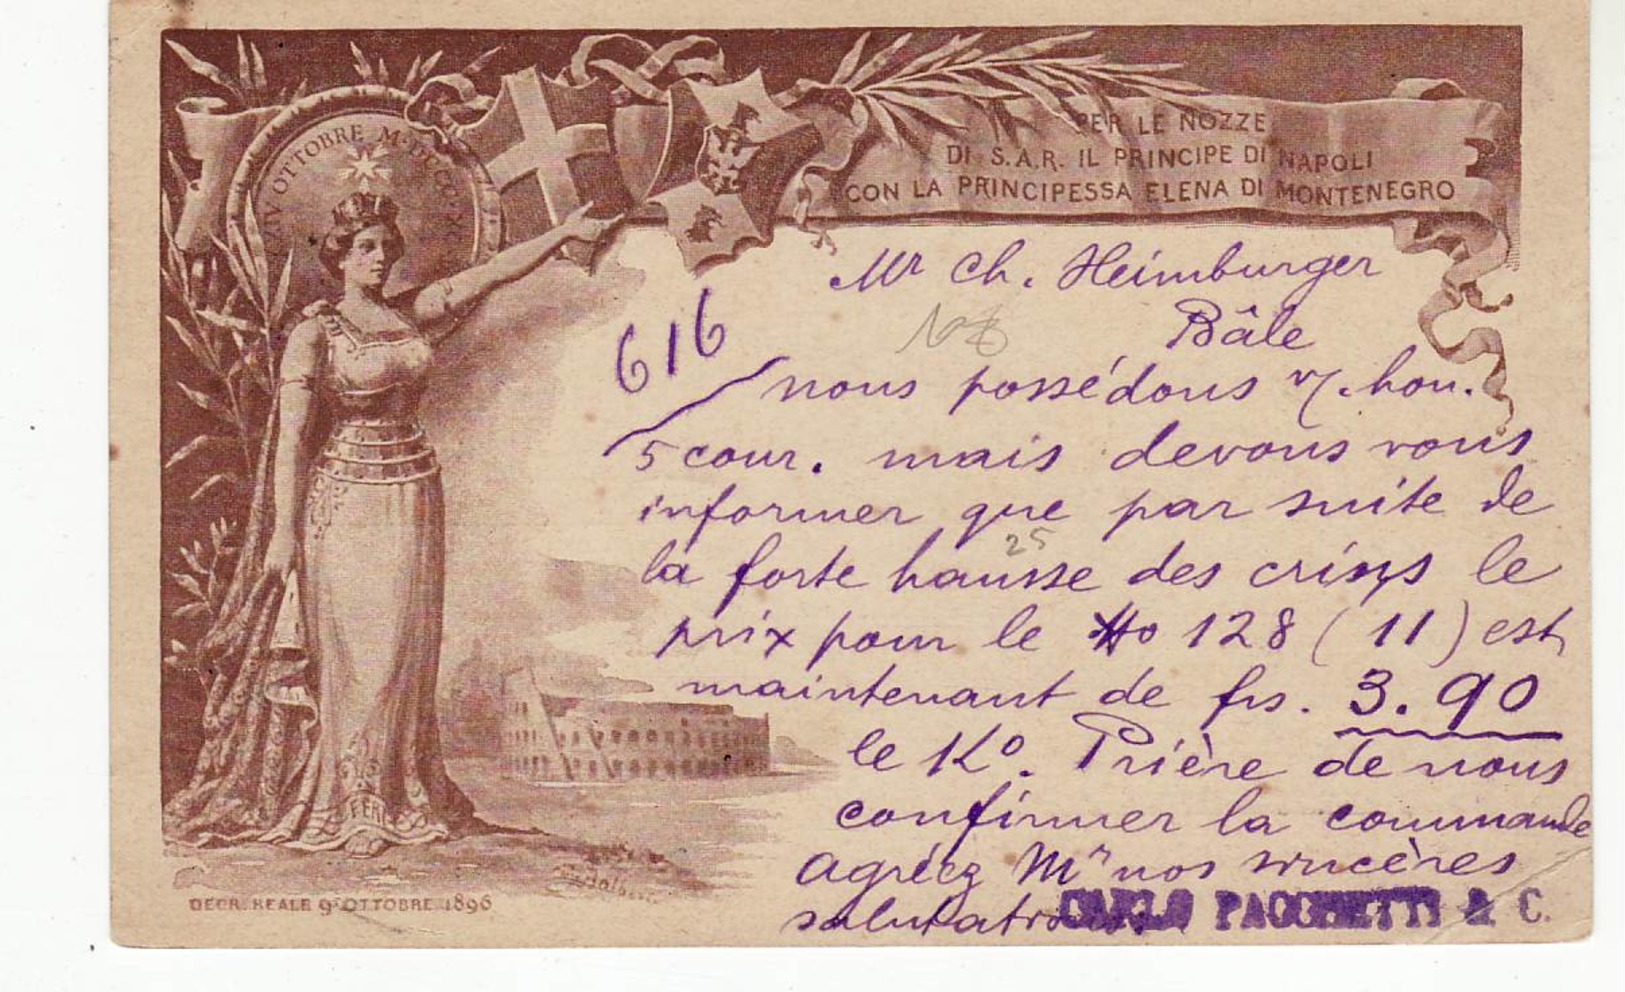 PER LE NOZZE
DI S.A.R. IL PRINCIPE DI NAPOLI
CON LA PRINCIPESSA ELENA DI MONTENEGRO
XXIV OTTOBRE M·DCCC·X
Mr Ch. Heimburger
Bâle
616
nous possédons v/. hon.
5 cour. mais devons vous
informer que par suite de
25
la forte hausse des crins le
prix pour le No 128 (11) est
maintenant de frs. 3.90
le Ko. Prière de nous
confirmer la commande
Agréez Mr nos sincères
salutations
CARLO PACCHETTI & C.
FERT
DECR. REALE 9 OTTOBRE 1896